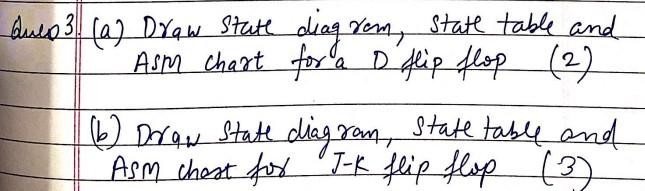 Ques 3. (a) Draw State diagram, State table and
ASM chart for a D flip flop (2)
(b) Draw State diagram, State table and
ASM chart for J-K flip flop (3)